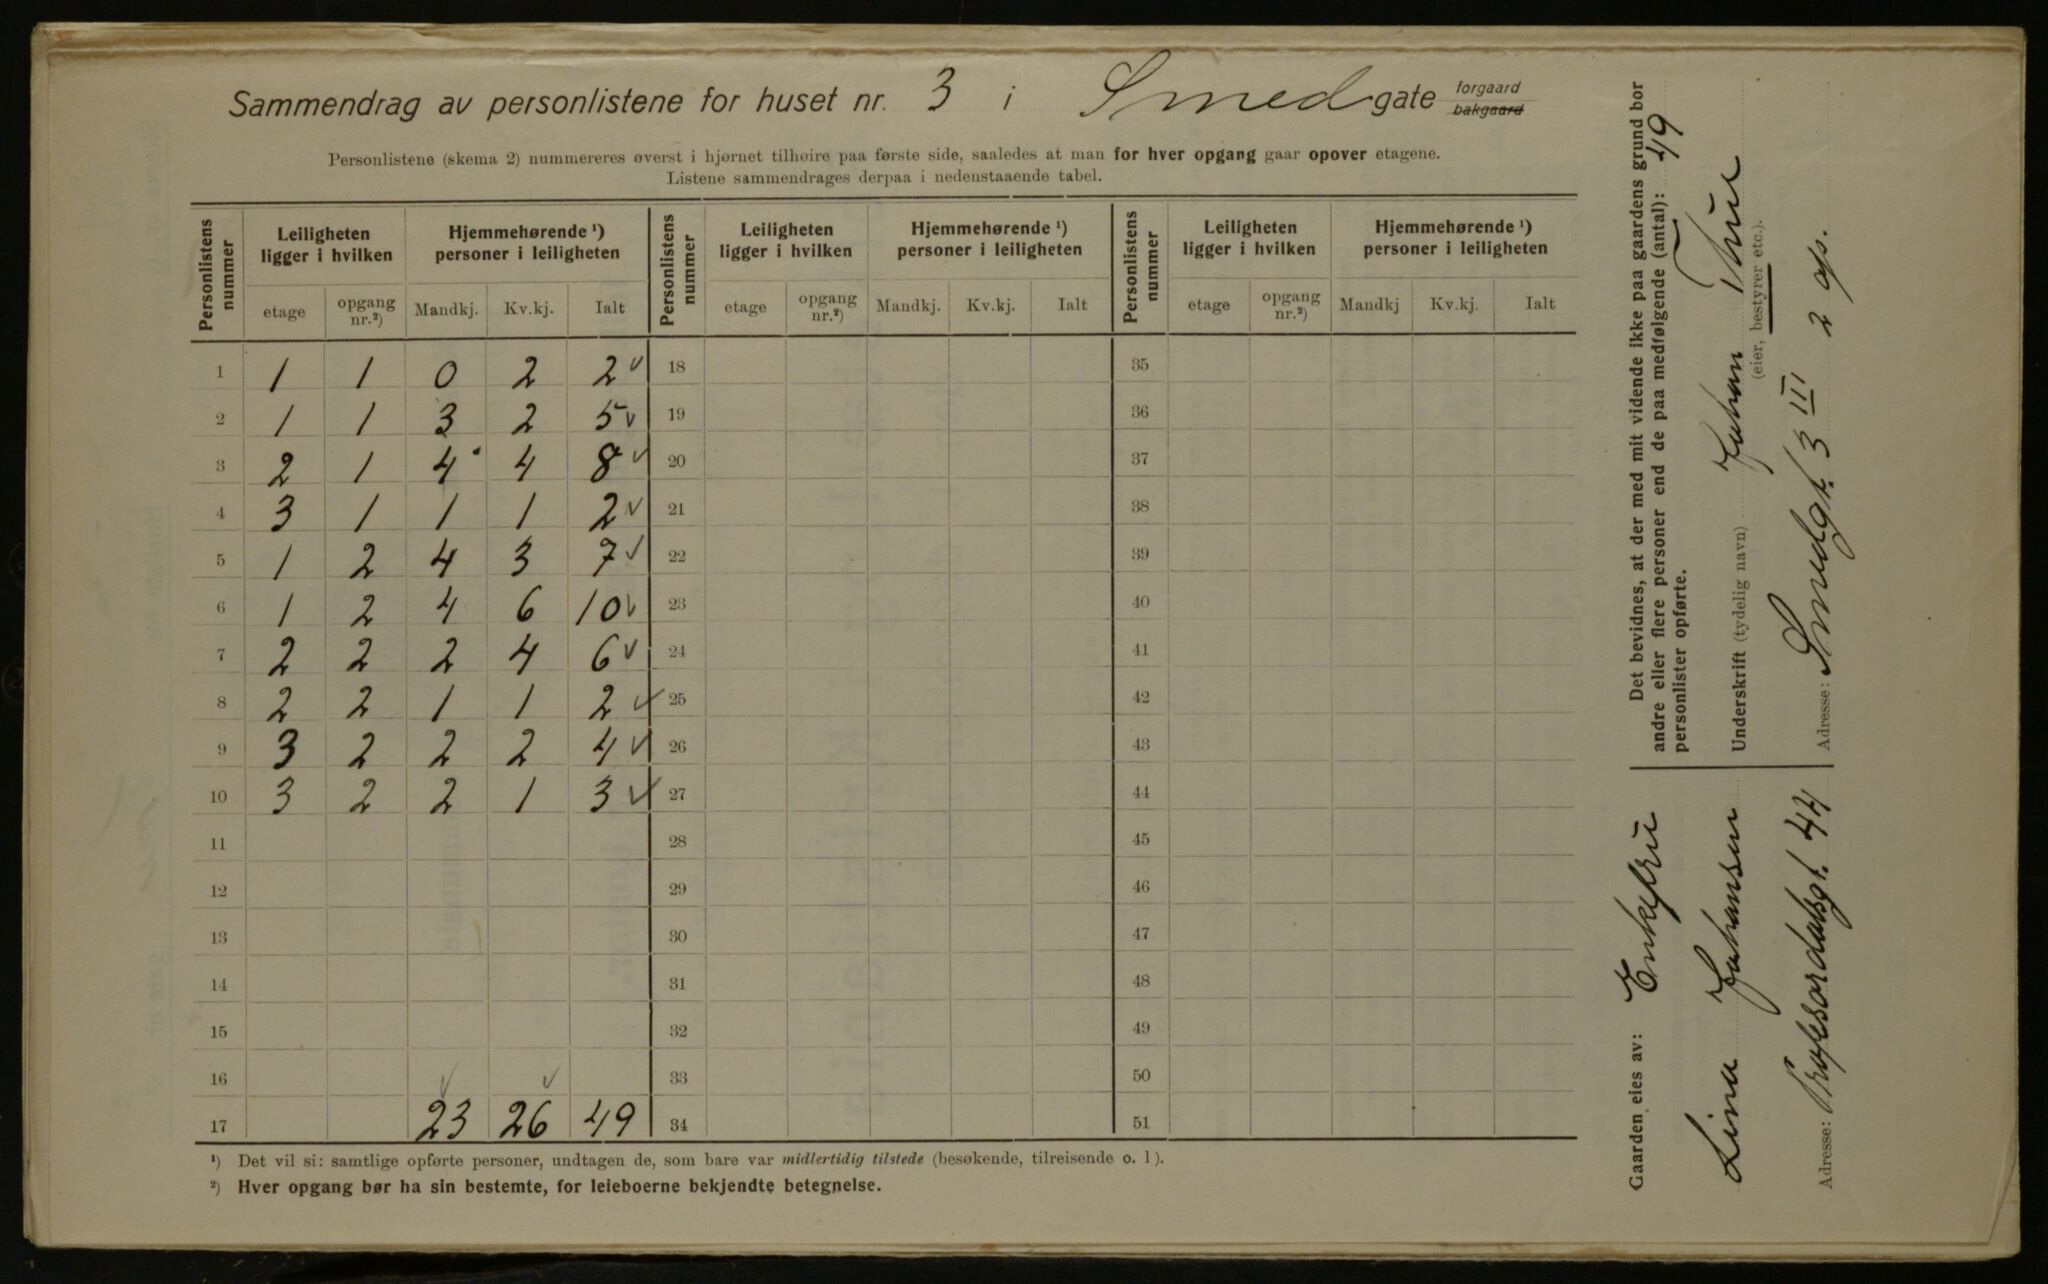 Sammendrag av personlistene for huset nr. 3 i Smedgate forgaard bakgaard
Personlistene (skema 2) nummereres øverst i hjørnet tilhøire paa første side, saaledes at man for hver opgang gaar opover etagene.
Listene sammendrages derpaa i nedenstaaende tabel.
Personlistens nummer | Leiligheten ligger i hvilken | Hjemmehørende ¹) personer i leiligheten | Personlistens nummer | Leiligheten ligger i hvilken | Hjemmehørende ¹) personer i leiligheten | Personlistens nummer | Leiligheten ligger i hvilken | Hjemmehørende ¹) personer i leiligheten
etage | opgang nr.²) | Mandkj. | Kv.kj. | Ialt | etage | opgang nr.²) | Mandkj. | Kv.kj. | Ialt | etage | opgang nr.²) | Mandkj | Kv.kj. | Ialt
1 1 1 0 2 2 ✓ 18 35
2 1 1 3 2 5 ✓ 19 36
3 2 1 4 4 8 ✓ 20 37
4 3 1 1 1 2 ✓ 21 38
5 1 2 4 3 7 ✓ 22 39
6 1 2 4 6 10 ✓ 23 40
7 2 2 2 4 6 ✓ 24 41
8 2 2 1 1 2 ✓ 25 42
9 3 2 2 2 4 ✓ 26 43
10 3 2 2 1 3 ✓ 27 44
11 28 45
12 29 46
13 30 47
14 31 48
15 32 49
16 ✓ ✓ 33 50
17 23 26 49 34 51
¹) Det vil si: samtlige opførte personer, undtagen de, som bare var midlertidig tilstede (besøkende, tilreisende o. l).
²) Hver opgang bør ha sin bestemte, for leieboerne bekjendte betegnelse.
Det bevidnes, at der med mit vidende ikke paa gaardens grund bor
andre eller flere personer end de paa medfølgende (antal): 49
personlister opførte.
Underskrift (tydelig navn) Johan Thue
(eier, bestyrer etc.).
Adresse: Smedgt. 3 III 2 op.
Gaarden eies av: Enkefru
Lina Johansen
Adresse: Profesordalsgt. 44